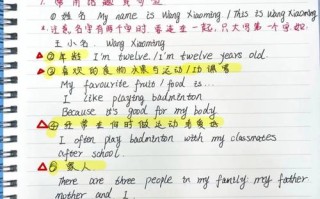 1. 常用话题及句型
① 姓名 My name is Wang Xiaoming. / This is Wang Xiaoming.
注意名字有两个字时,要连在一起,只大写第一个字母.
王小名. Wang Xiaoming
② 年龄 I'm twelve. / I'm twelve years old.
③ 喜欢的食物/水果与运动/
My favourite fruit / food is...
I like playing badminton
Because it's good for my body.
④ 经常在何时做运动
I often play badminton with my classmates
after school.
⑤ 家人
There are three people in my family: my father
mother and I.